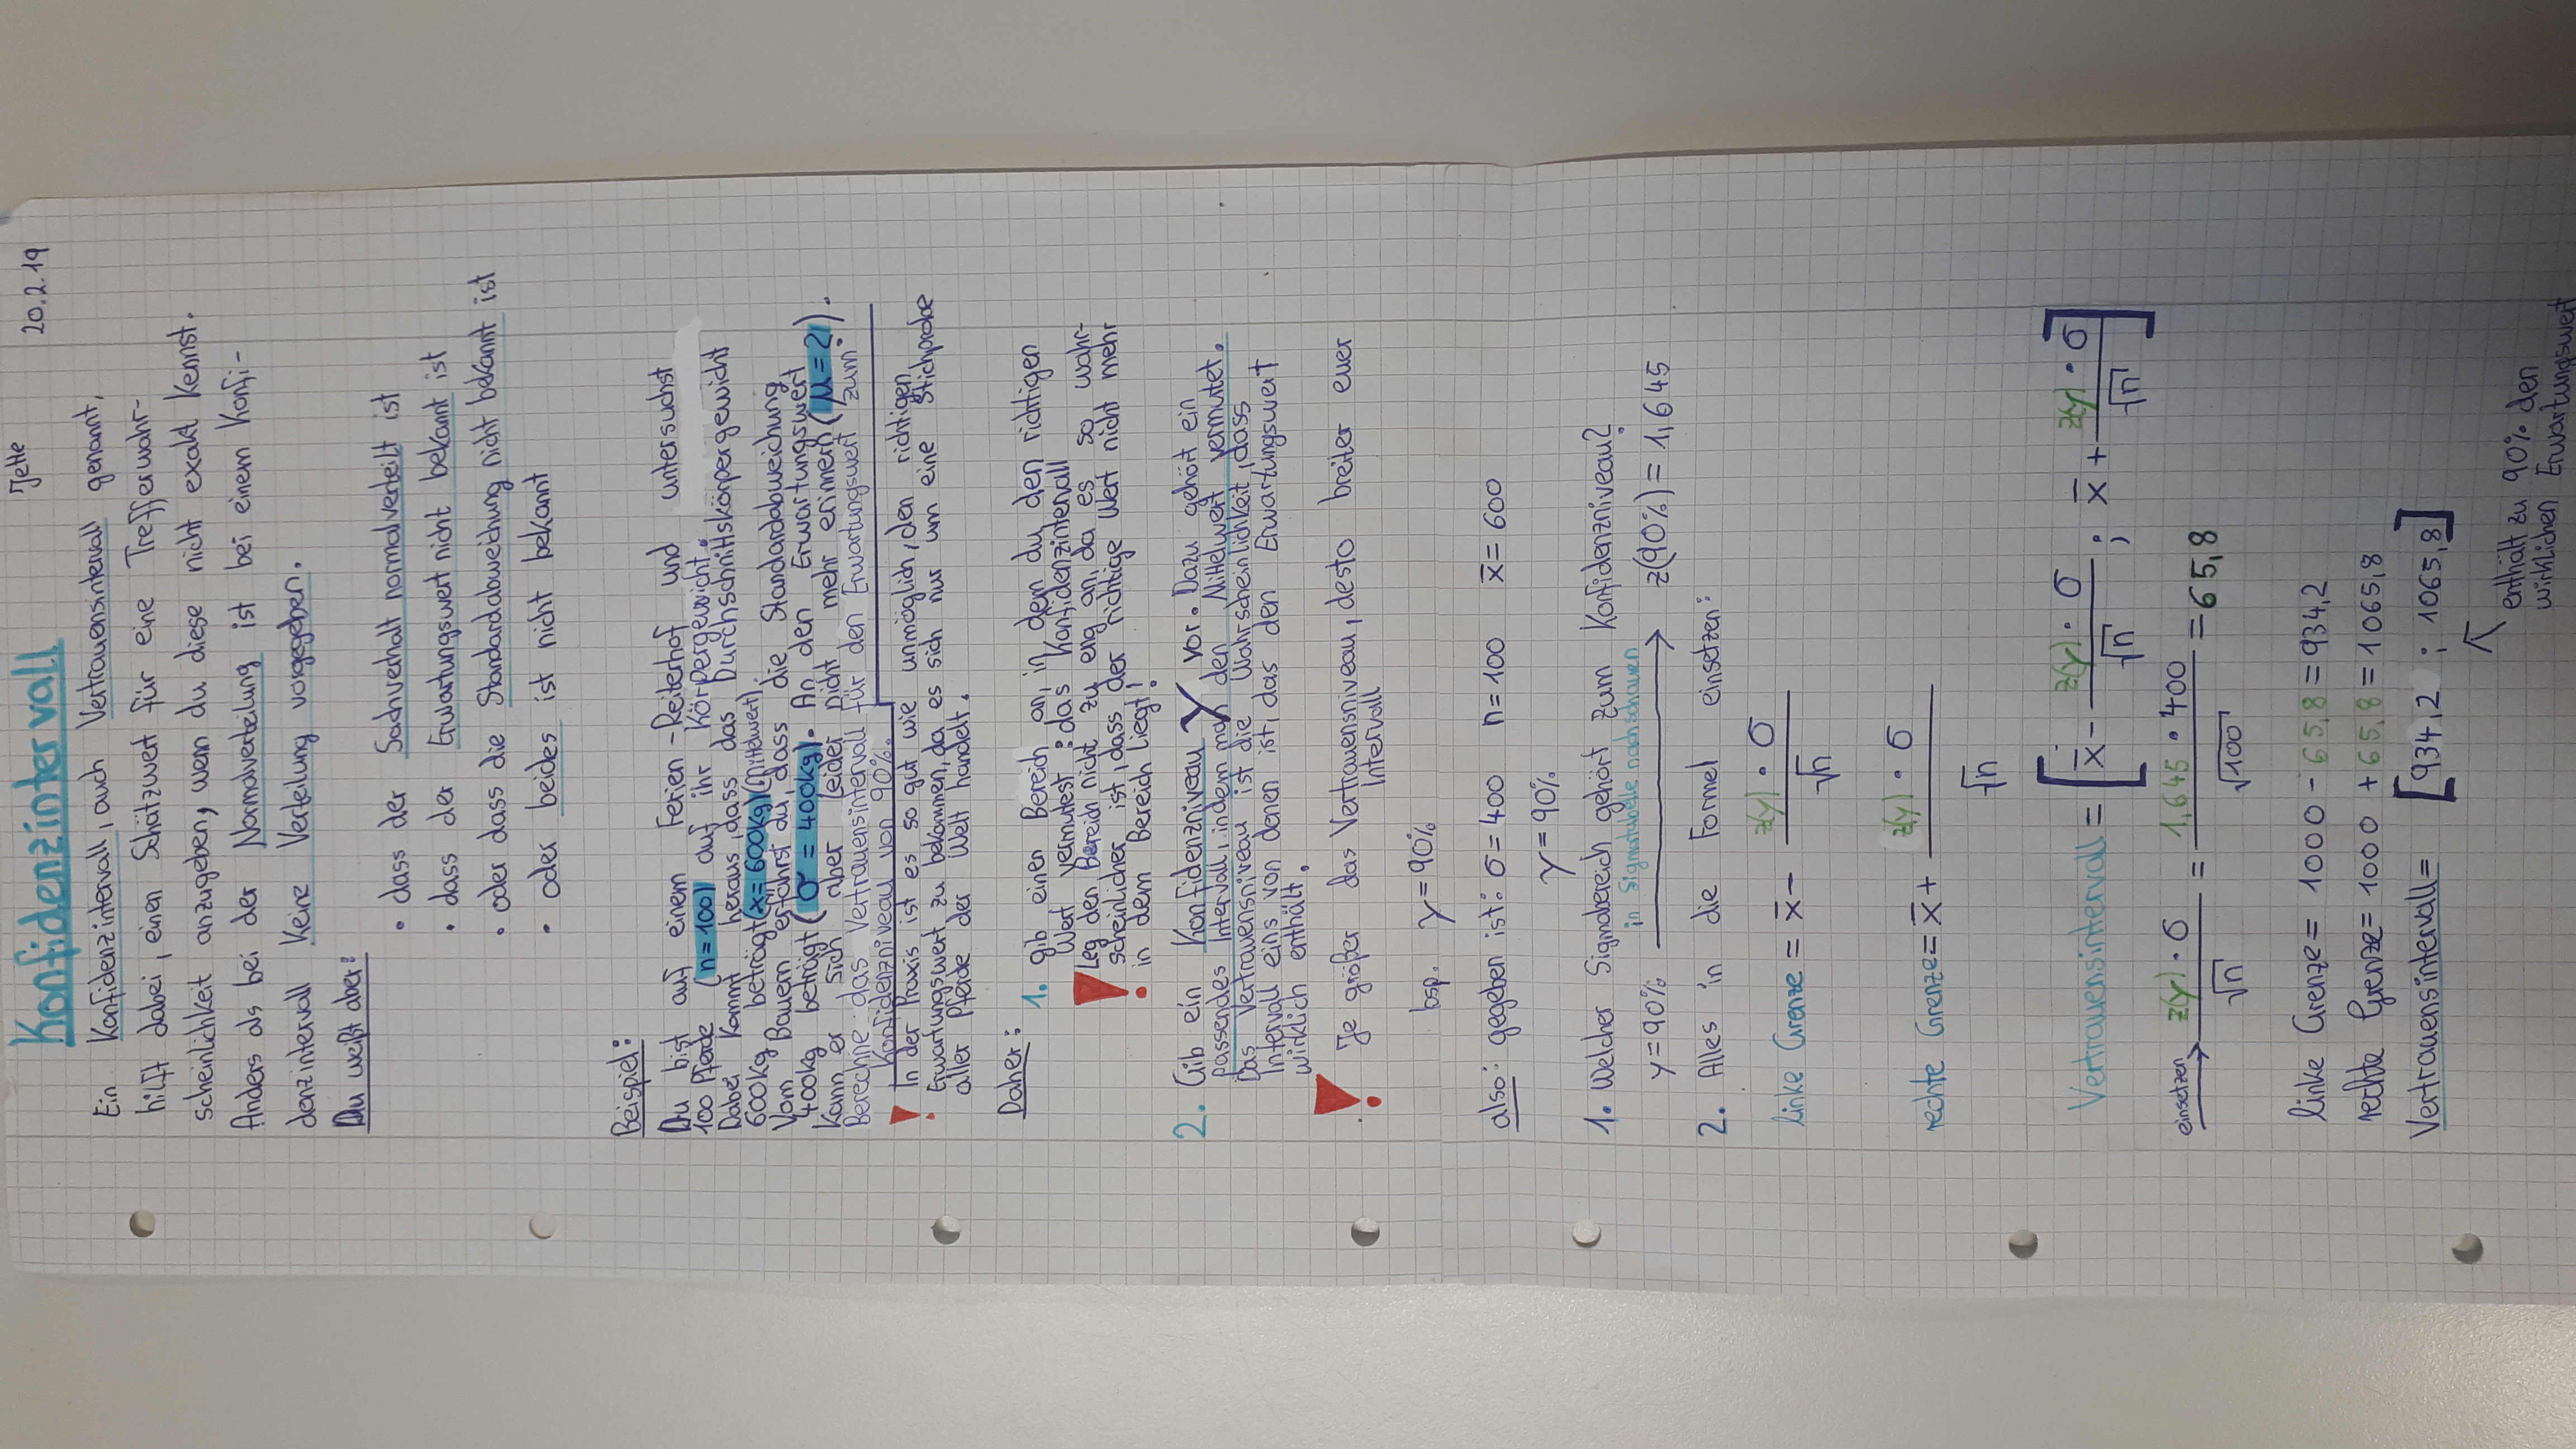 Jette 20.2.19
Konfidenzintervall
Ein Konfidenzintervall, auch Vertrauensintervall genannt,
hilft dabei, einen Schätzwert für eine Trefferwahr-
scheinlichkeit anzugeben, wenn du diese nicht exakt kennst.
Anders als bei der Normalverteilung ist bei einem Konfi-
denzintervall keine Verteilung vorgegeben.
Du weißt aber:
• dass der Sachverhalt normalverteilt ist
• dass der Erwartungswert nicht bekannt ist
• oder dass die Standardabweichung nicht bekannt ist
• oder beides ist nicht bekannt
Beispiel:
Du bist auf einem Ferien-Reiterhof und untersuchst
100 Pferde (n=100) auf ihr Körpergewicht.
Dabei kommt heraus, dass das Durchschnittskörpergewicht
600kg beträgt (x̄=600kg) (Mittelwert).
Vom Bauern erfährst du, dass die Standardabweichung
400kg beträgt (σ=400kg). An den Erwartungswert
kann er sich aber leider nicht mehr erinnern (μ=?).
Berechne das Vertrauensintervall für den Erwartungswert zum
Konfidenzniveau von 90%.
! In der Praxis ist es so gut wie unmöglich, den richtigen
Erwartungswert zu bekommen, da es sich nur um eine Stichprobe
aller Pferde der Welt handelt.
Daher: 1. gib einen Bereich an, in dem du den richtigen
Wert vermutest: das Konfidenzintervall
! Leg den Bereich nicht zu eng an, da es so wahr-
scheinlicher ist, dass der richtige Wert nicht mehr
in dem Bereich liegt!
2. Gib ein Konfidenzniveau γ vor. Dazu gehört ein
passendes Intervall, indem man den Mittelwert vermutet.
Das Vertrauensniveau ist die Wahrscheinlichkeit, dass
Intervall eins von denen ist, das den Erwartungswert
wirklich enthält.
! Je größer das Vertrauensniveau, desto breiter euer
Intervall
bsp. γ=90%
also: gegeben ist: σ=400 n=100 x̄=600
γ=90%
1. Welcher Sigmabereich gehört zum Konfidenzniveau?
in Sigmatabelle nachschauen
γ=90% → z(90%)=1,645
2. Alles in die Formel einsetzen:
linke Grenze = x̄ - z(γ)·σ / √n
rechte Grenze = x̄ + z(γ)·σ / √n
Vertrauensintervall = [x̄ - z(γ)·σ / √n ; x̄ + z(γ)·σ / √n]
einsetzen → z(γ)·σ / √n = 1,645·400 / √100 = 65,8
linke Grenze = 1000 - 65,8 = 934,2
rechte Grenze = 1000 + 65,8 = 1065,8
Vertrauensintervall= [934,2 ; 1065,8]
enthält zu 90% den
wirklichen Erwartungswert